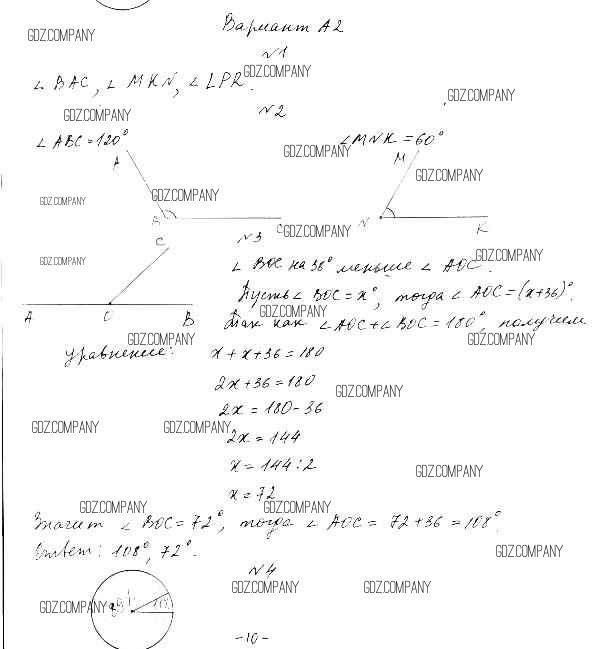 Вариант А2
GDZ.COMPANY
№1
∠ BAC, ∠ MKN, ∠ LPR.
GDZ.COMPANY
GDZ.COMPANY
№2
GDZ.COMPANY
∠ ABC = 120°
∠MNK = 60°
GDZ.COMPANY
A
M
GDZ.COMPANY
GDZ.COMPANY
GDZ.COMPANY
N
K
C
GDZ.COMPANY
№3
C
GDZ.COMPANY
GDZ.COMPANY
∠ BOC на 36° меньше ∠ AOC.
Пусть ∠ BOC = x°, тогда ∠ AOC = (x+36)°.
GDZ.COMPANY
A O B
Так как ∠ AOC + ∠ BOC = 180°, получим
GDZ.COMPANY
GDZ.COMPANY
уравнение: x + x + 36 = 180
2x + 36 = 180
GDZ.COMPANY
2x = 180 - 36
GDZ.COMPANY
GDZ.COMPANY
2x = 144
x = 144 : 2
GDZ.COMPANY
x = 72
GDZ.COMPANY
GDZ.COMPANY
Значит ∠ BOC = 72°, тогда ∠ AOC = 72 + 36 = 108°.
Ответ: 108°, 72°.
GDZ.COMPANY
№4
GDZ.COMPANY
GDZ.COMPANY
GDZ.COMPANY
-10-